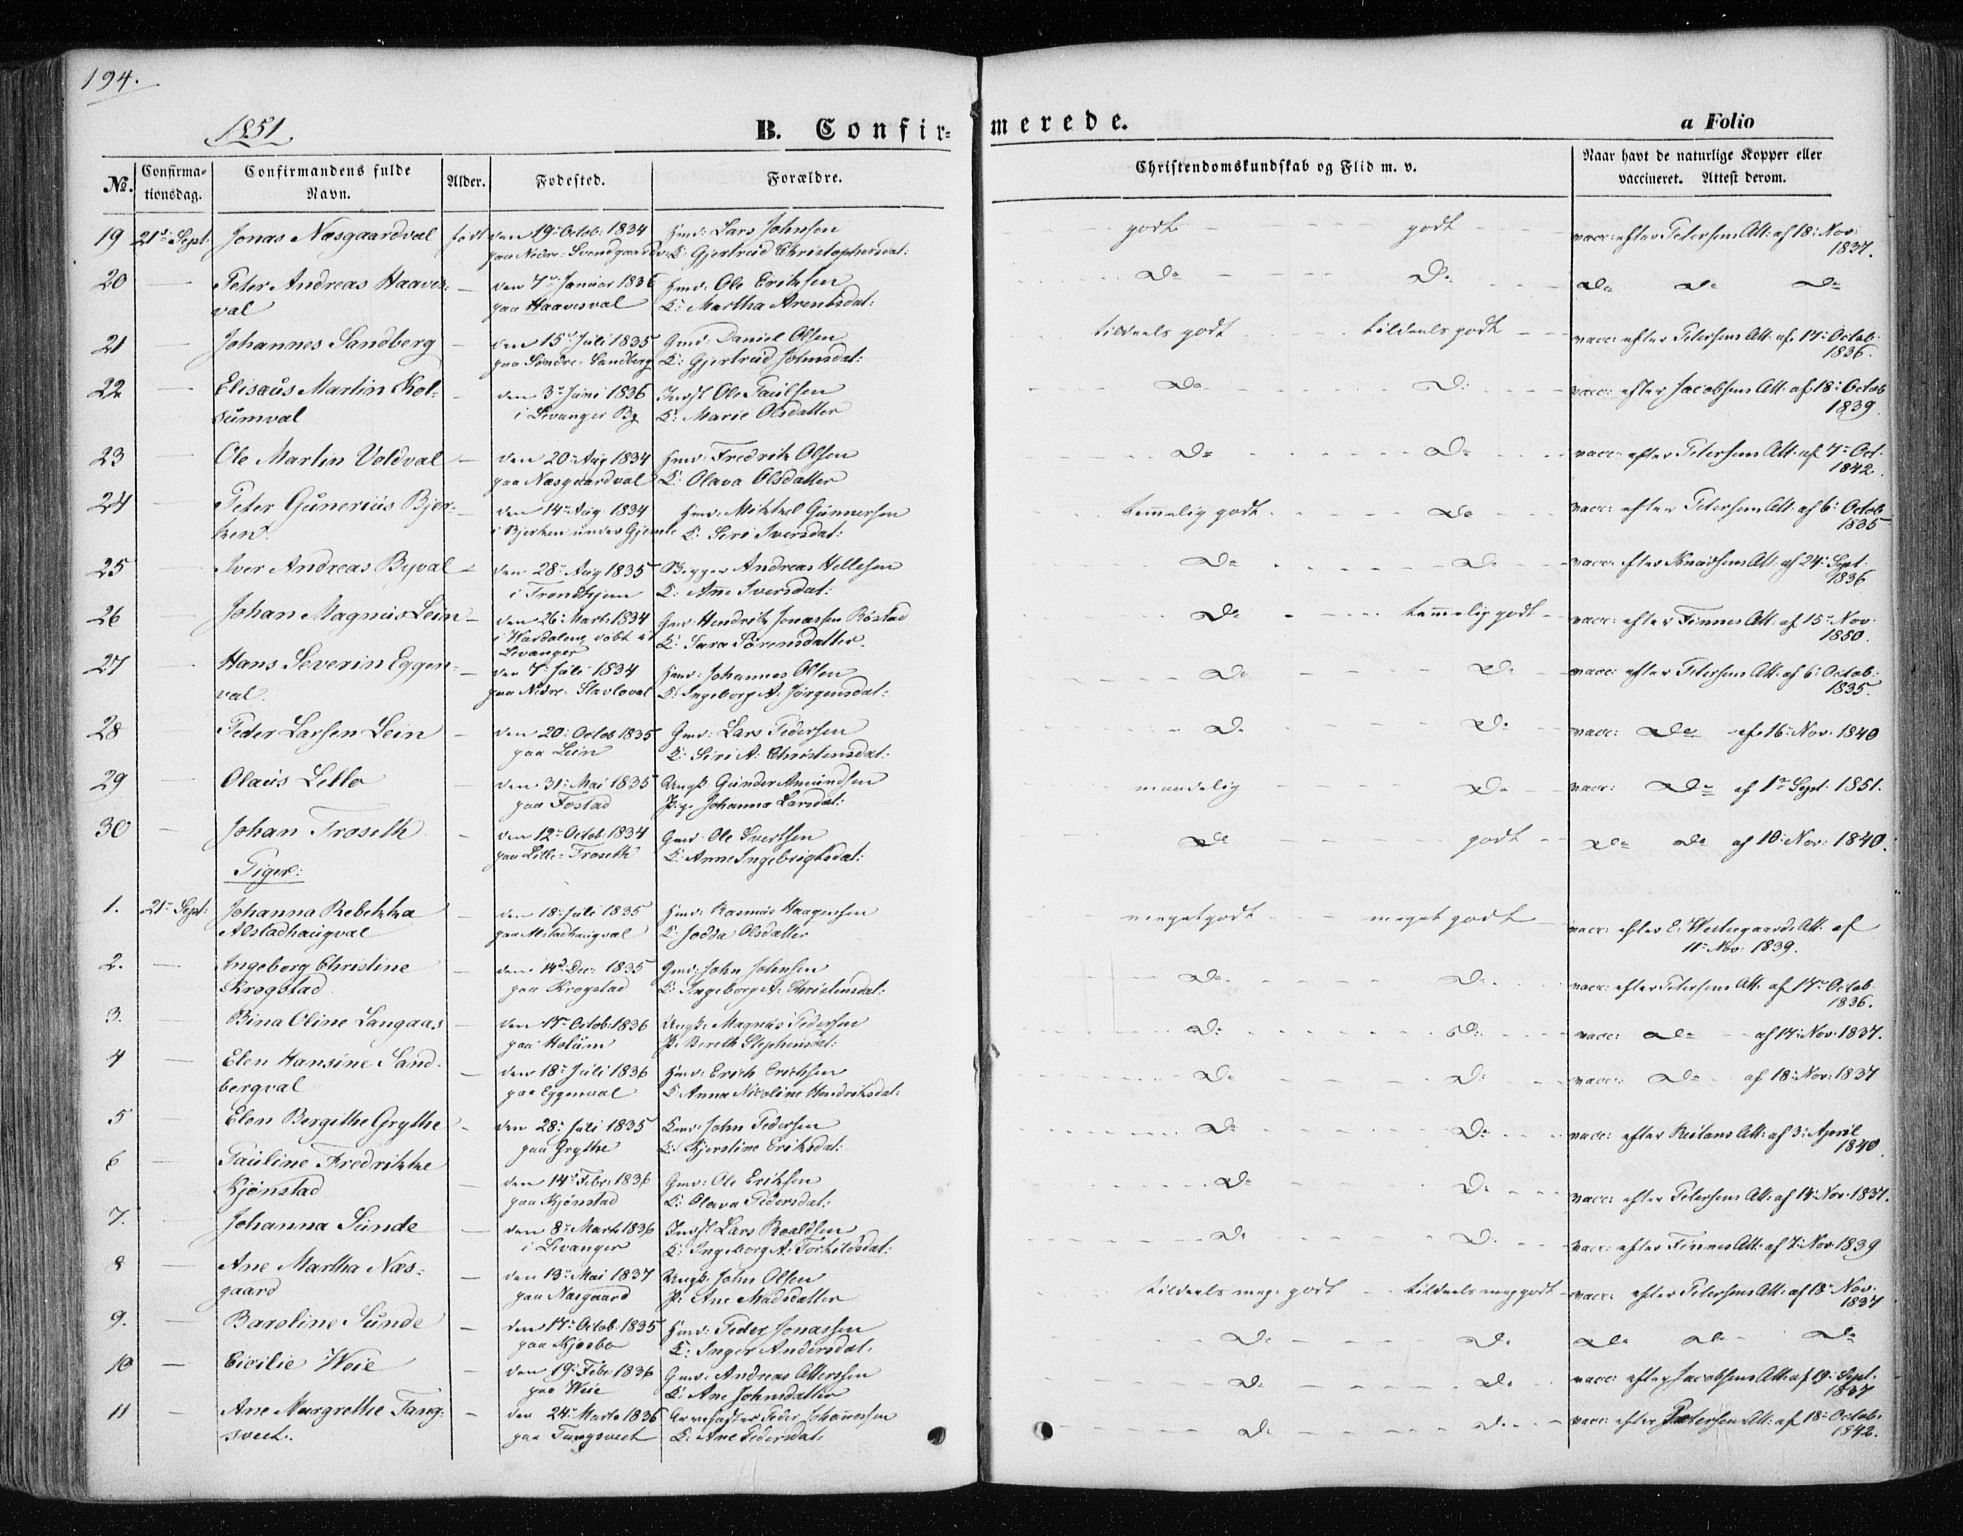 194.
1851
B. Confir= merede.
a Folio
No.
Confirma-
tionsdag.
Confirmandens fulde
Navn.
Alder.
Fødested.
Forældre.
Christendomskundskab og Flid m. v.
Naar havt de naturlige Kopper eller
vaccineret. Attest derom.
19 21de Sept: Jonas Næsgaardval født den 19: Octob: 1834 Hmd: Lars Johnsen godt godt vacc: efter Petersens Att: af 18: Nov:
paa Nedre- K: Gjertrud Christophersdat: 1837.
20 Peter Andreas Haaves- den 7de Januar 1836 Hmd: Ole Eriksen Do Do Do Do Do
val paa Haavesval K: Martha Arentsdat:
21 Johannes Sandberg den 15de Juli 1835 Gmd: Daniel Olsen tildeels godt tildeels godt vacc: efter Petersens Att: af 17: Octob:
paa Søndre- Sandberg K: Gjertrud Johnsdat: 1836.
22 Elisæus Martin Kol- den 3de Juni 1836 Indst Ole Paulsen Do Do vacc: efter Jacobsens Att: af 18: Octob
sumval i Levanger By K: Marie Olsdatter 1839.
23 Ole Martin Voldval den 20: Aug 1834 Hmd: Fredrik Olsen Do Do vacc: efter Petersens Att: af 7de Oct:
paa Næsgaardval K: Olava Olsdatter 1842.
24 Peter Gunerius Bjer- den 14de Aug 1834 Hmd: Mikkel Gunnersen temmelig godt Do vacc: efter Petersens Att: af 6: Octob
ken i Bjerken under Gjemle K: Siri Iversdat: 1835
25 Iver Andreas Byval den 28de Aug 1835 Andreas Hellesen Do Do vacc: efter Att: af 24: Sept
i Trondhjem K: Ane Iversdat: 1836
26 Johan Magnus Lein den 26: Marts 1834 Gmd: Hendrik Jonassen Røstad Do temmelig godt vacc: efter Finnes Att: af 15de Nov:
i Værdalen, døbt i K: Sara Sørensdatter 1850.
Levanger
27 Hans Severin Eggen- den 7: Juli 1834 Hmd: Johannes Olsen Do Do vacc: efter Petersens Att: af 6: Octob:
val. paa Nedre- K: Ingeborg A: Jørgensdat: 1835.
28 Peder Larsen Lein den 20: Octob 1835 Gmd: Lars Pedersen Do Do vacc: Do af 16: Nov: 1840
paa Lein K: Siri A: Christensdat:
29 Olaus Lello den 31: Mai 1835 Ungk: Gunder Amundsen maadelig Do vacc: Do af 1ste Sept: 1851.
paa Fostad Pige Johanna Larsdat:
30 Johan Froseth den 12te Octob: 1834 Gmd: Ole Sivertsen Do godt Do Do af 10: Nov: 1840.
paa Lille- Froseth K: Anne Ingebrigtsdat:
Piger:
1. 21de Sept: Johanna Rebekka den 18: Juli 1835 Hmd: Rasmus Haagensen meget godt meget godt vacc: efter E. Westergaards Att: af
Alstadhaugval paa Alstadhaugval K: Olsdatter 11te Nov: 1839.
2. Ingeborg Christine den 14de Dec: 1835 Gmd: John Johnsen Do Do vacc: efter Petersens Att: af 17de Octob:
Krogstad paa Krogstad K: Ingeborg A: Christensdat: 1836.
3. Bina Oline Langaas den 17de Octob: 1836 Ungk: Magnus Pedersen Do Do vacc: Do af 14: Nov: 1837.
paa Holum P: Bereth Stephensdat:
4 Elen Hansine Sand- den 18de Juli 1836 Hmd: Erich Erichsen Do Do vacc: Do af 18: Nov: 1837
bergval paa Eggenval K: Anna Nicoline Hendriksdat:
5 Elen Bergithe Grythe den 28: Juli 1835 Gmd: John Pedersen Do Do vacc: efter Reitans Att: af 3: April
paa Grythe K: Kjerstine Eriksdat: 1840.
6 Pauline Fredrikke den 14de Febr: 1836 Gmd: Ole Eriksen Do Do vacc: efter Petersens Att: af 14: Nov: 1837.
Kjønstad paa Kjønstad K: Olava Pedersdat:
7. Johanna Sunde den 8de Marts 1836 Indst Lars Roaldsen Do Do vacc: efter Finnes Att: af 7: Nov: 1839
i Levanger K: Ingeborg A: Torkildsdat:
8 Ane Martha Næs- den 13de Mai 1837 Ungk: John Olsen tildeels meg: godt tildeels meg godt vacc: efter Petersens Att: af 18: Nov:
gaard paa Næsgaard P: Ane Madsdatter 1837
9. Baroline Sunde den 17de Octob: 1835 Hmd: Peder Jonassen Do Do Do Do Do
paa Kjosbo K: Inger Andersdat:
10 Cicilie Weie den 19: Febr 1836 Gmd: Andreas Ottersen Do Do vacc: efter Jacobsens Att: af 19: Sept.
paa Weie K: Ane Johnsdatter 1837
11 Ane Margrethe Tang- den 24de Marts 1836 Peder Johannessen Do Do vacc: efter Petersens Att: af 18: Octob:
svedt. paa Tangsvedt K: Ane Pedersdat: 1842.